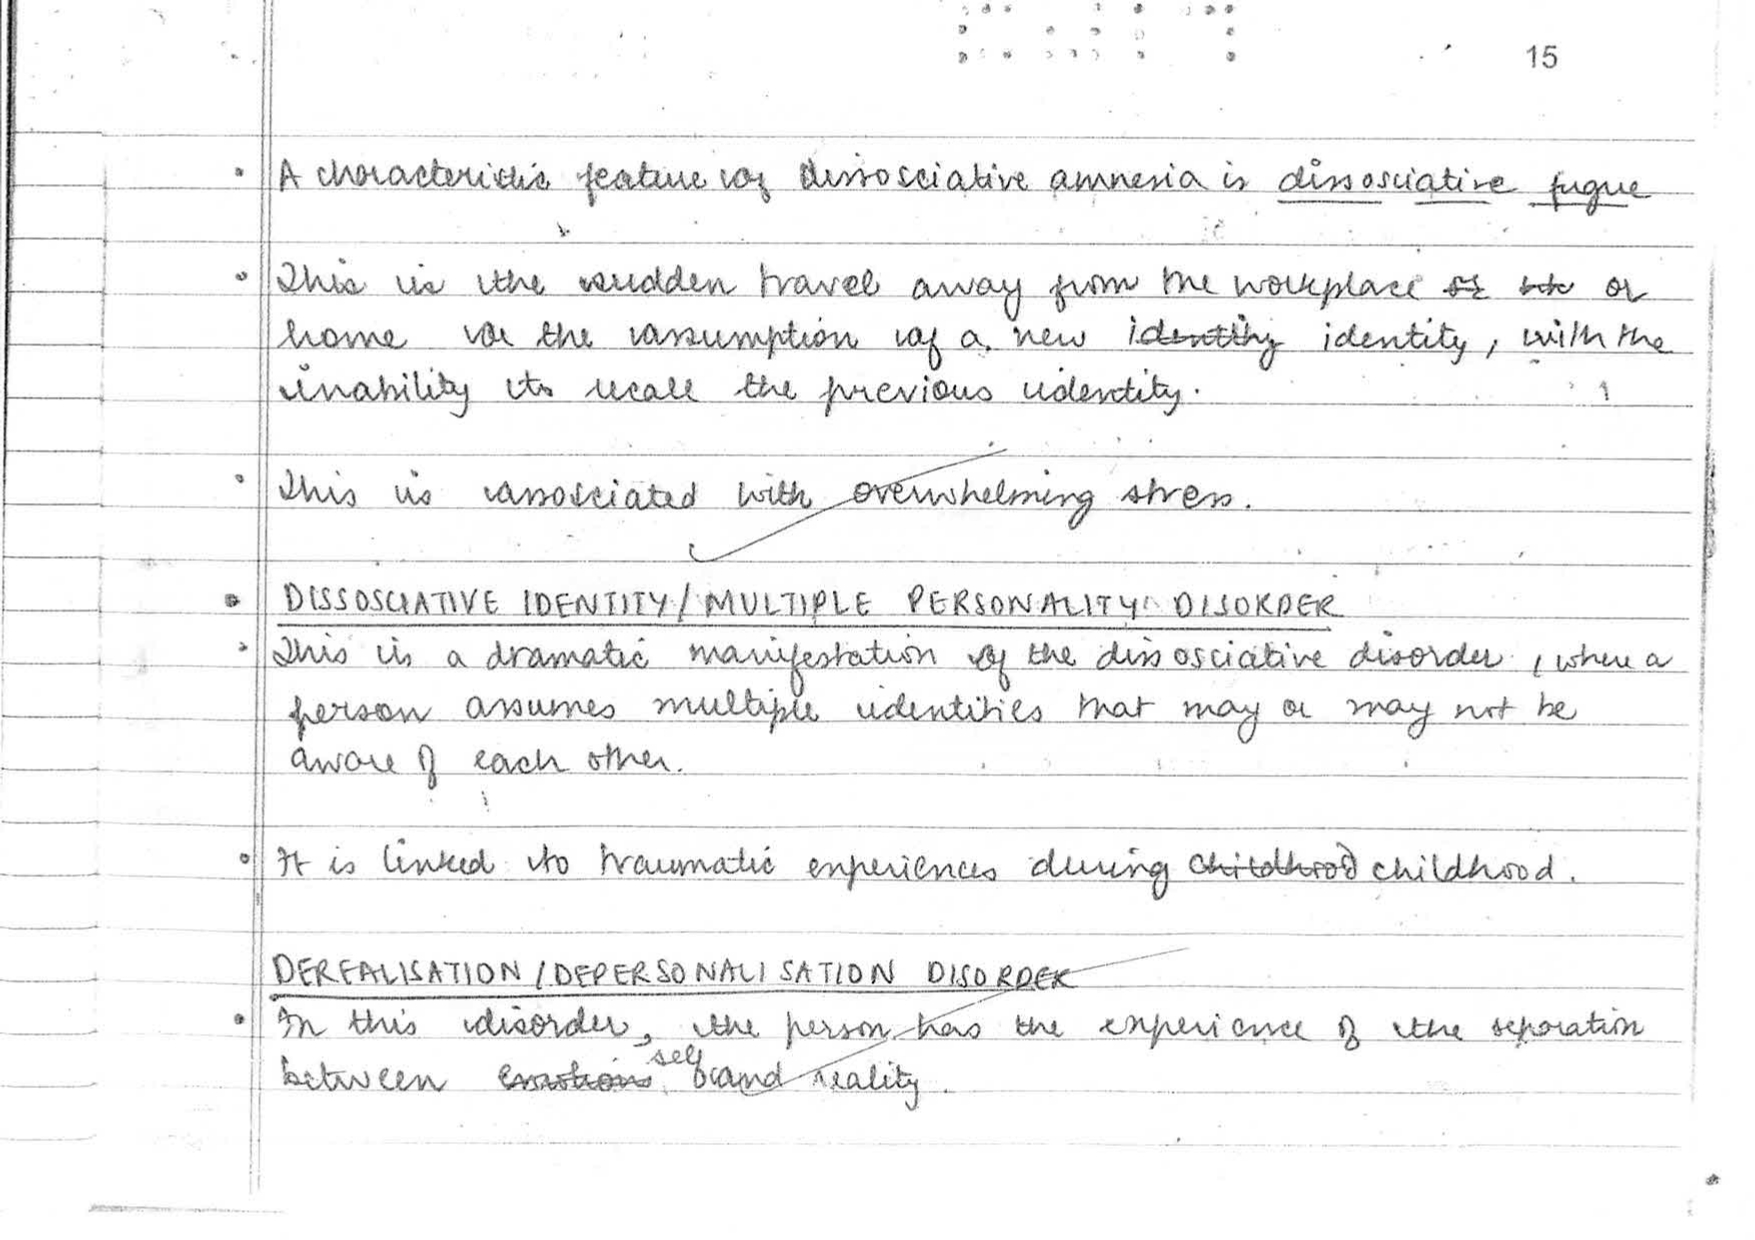 15
• A characteristic feature of dissosciative amnesia is dissosciative fugue
• This is the sudden travel away from the workplace or
home or the assumption of a new identity identity, with the
inability to recall the previous identity.
• This is assosciated with overwhelming stress.
• DISSOSCIATIVE IDENTITY/MULTIPLE PERSONALITY DISORDER
• This is a dramatic manifestation of the dissosciative disorder, where a
person assumes multiple identities that may or may not be
aware of each other.
• It is linked to traumatic experiences during childhood childhood.
DEREALISATION/DEPERSONALISATION DISORDER
• In this disorder, the person has the experience of the separation
between emotions self and reality.